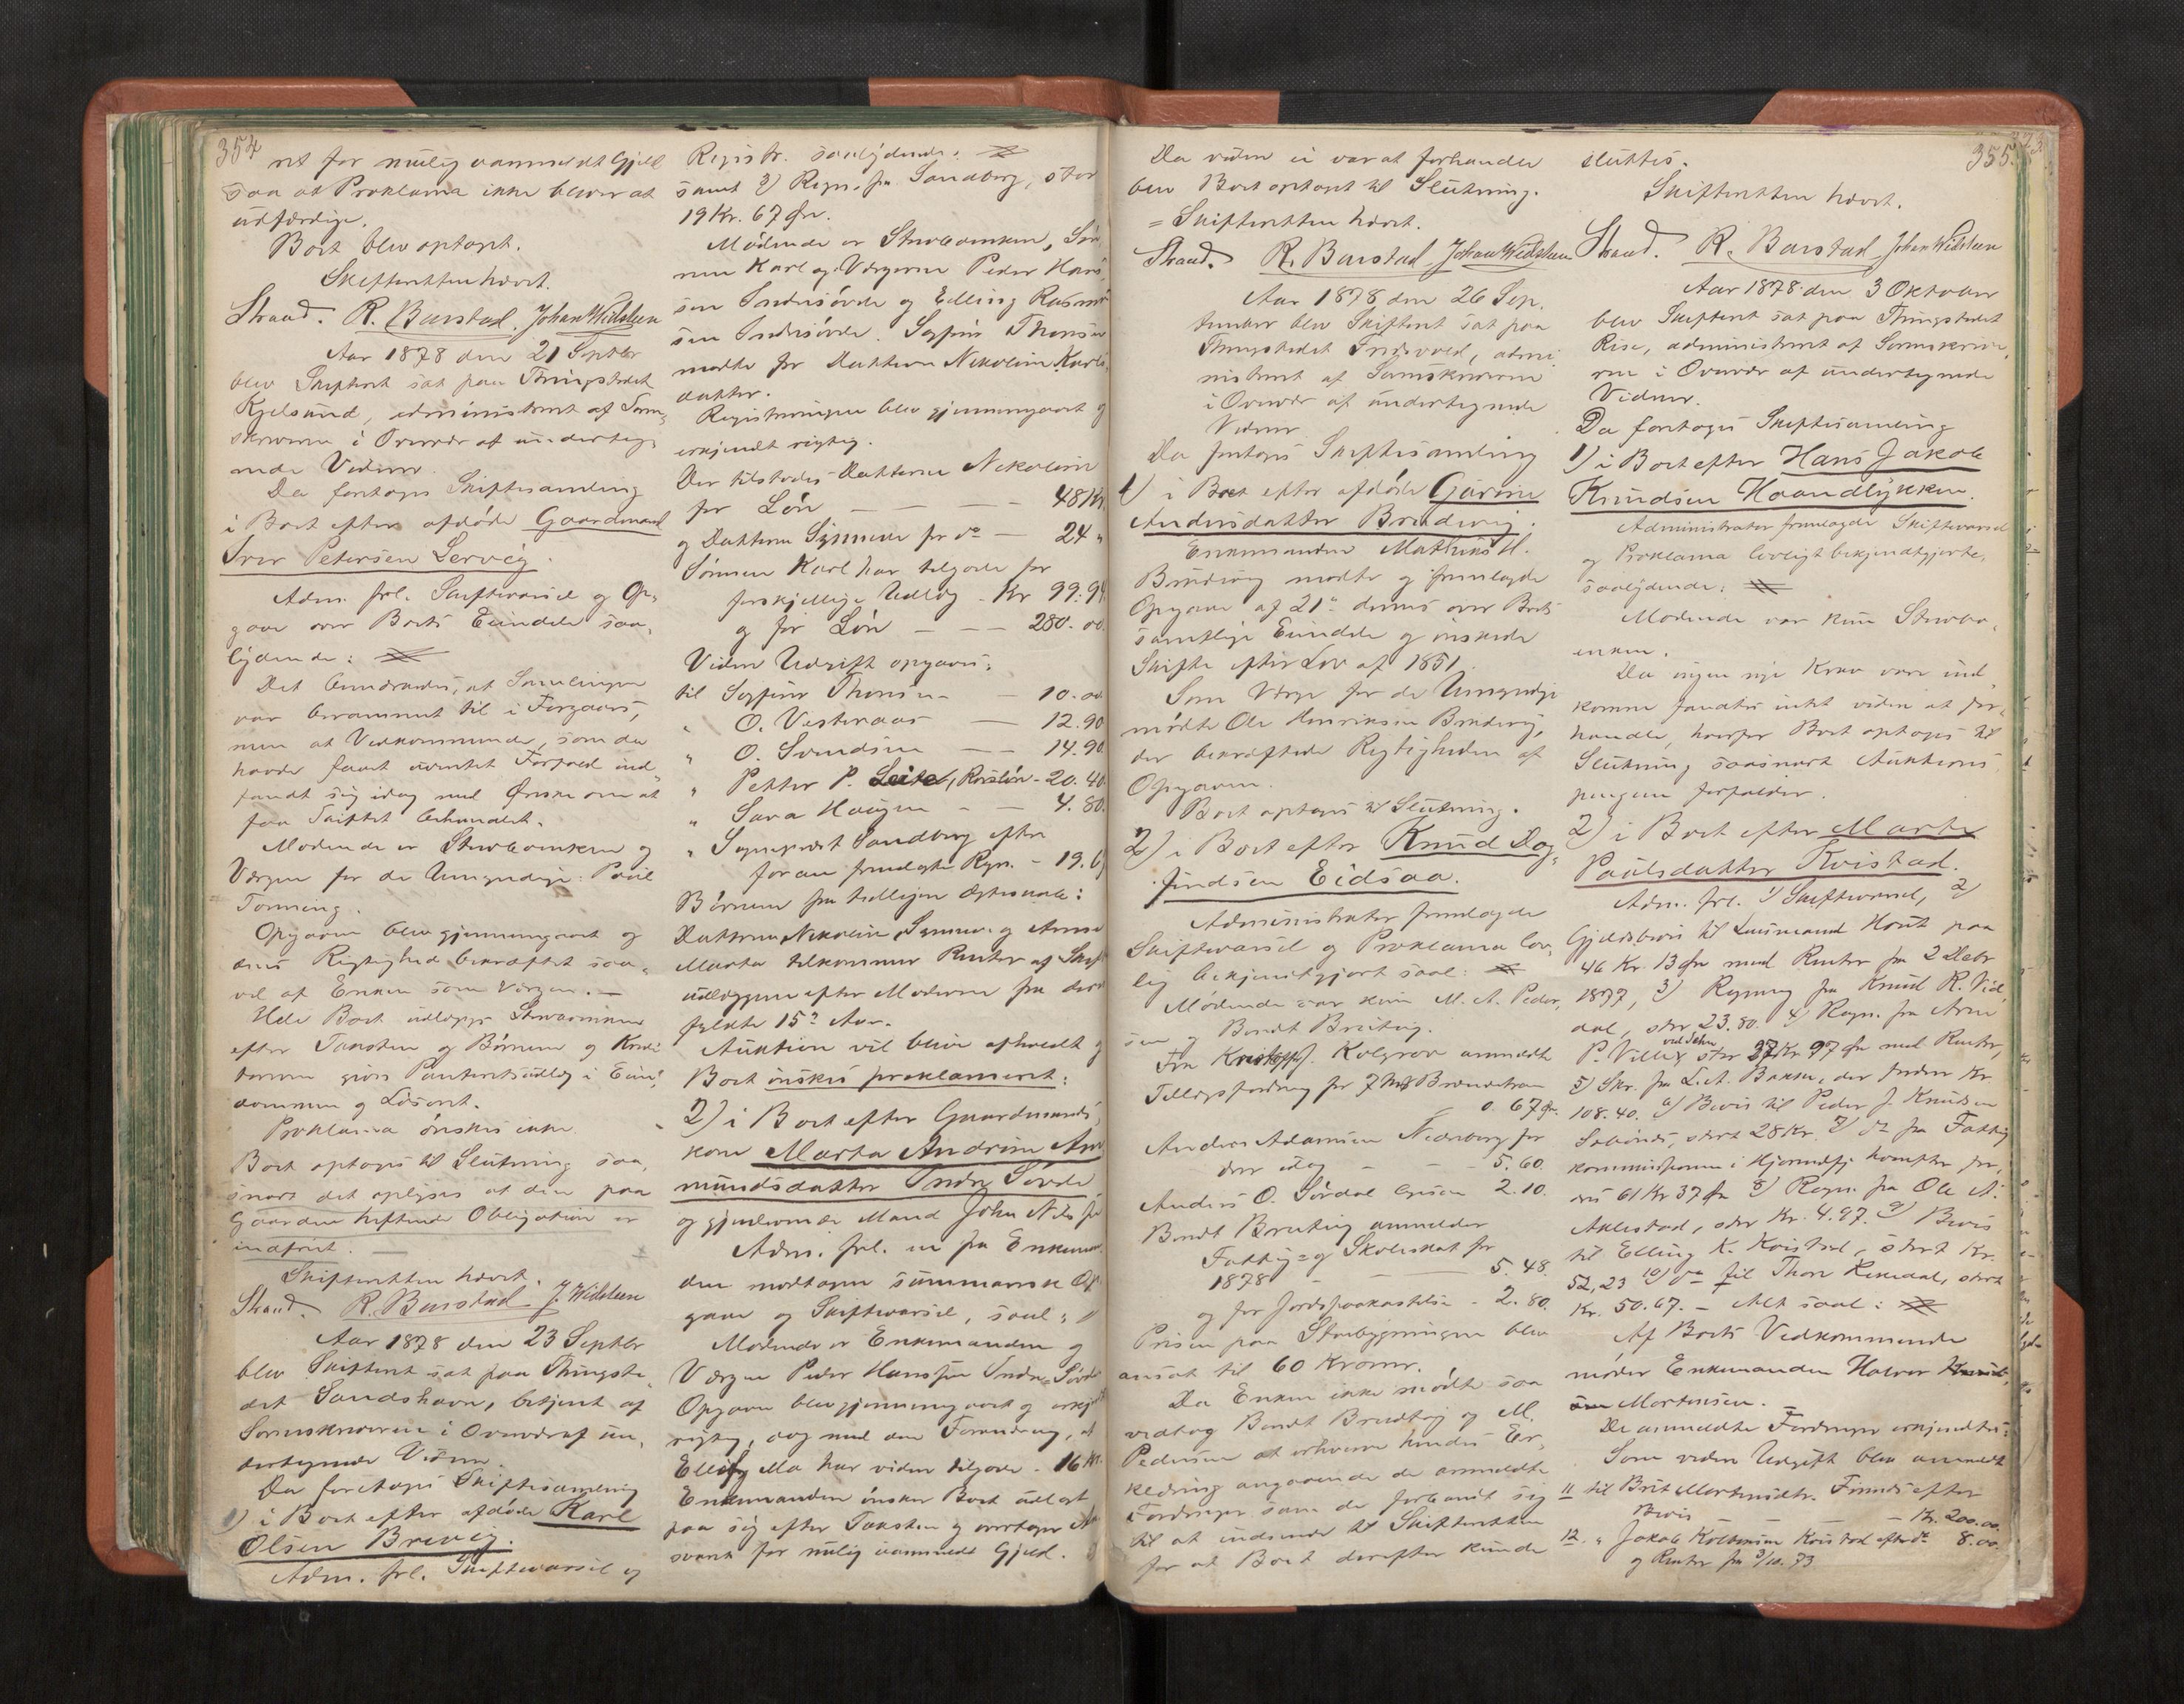 354
ret for mulig uanmeldt Gjeld
saa at Proklama ikke bliver at
udfærdige.
Boet blev optaget.
Skifteretten hævet.
Strand. R. Barstad. Johan Widsteen
Aar 1878 den 21 Septbr
blev Skifteret sat paa Thingstedet
Kjelsund, administreret af Soren¬
skriveren i Overvær af underteg¬
nede Vidner.
Da foretoges Skiftesamling
i Boet efter afdøde Gaardmand
Iver Petersen Lervig.
Adm. frl. Skiftevarsel og Op¬
gave over Boets Eiendele saa¬
lydende:
Det bemærkedes, at Samlingen
var berammet til i Forgaars,
men at Vedkommende, som da
havde faaet uventet Forfald ind¬
fandt sig idag med Ønske om at
faa Skiftet behandlet.
Mødende er Stervboenken og
Værgen for de Umyndige: Paul
Tonning.
Opgaven blev gjennemgaaet og
dens Rigtighed bekræftet saa¬
vel af Enken som Værgen. —
Hele Boet udlægges Stervboenken
efter Taksten og Børnene og Kredi
torerne gives Panteretsudlæg i Eien¬
dommen og Løsøret.
Proklama ønskes ikke.
Boet optoges til Slutning saa¬
snart det oplyses at den paa
Gaarden heftende Obligation er
indfriet. —
Skifteretten hævet.
Strand. R. Barstad J. Widsteen
Aar 1878 den 23 Septbr
blev Skifteret sat paa Thingste¬
det Sandshavn, betjent af
Sorenskriveren i Overvær af un¬
dertegnede Vidner.
Da foretoges Skiftesamling
1) i Boet efter afdøde Karl
Olsen Brevig.
Adm. frl. Skiftevarsel og
Registr. saalydende:
samt 3) Regn. fra Sandberg, stor
19 Kr. 67 Øre.
Mødende er Stervboenken, Søn¬
nen Karl og Værgerne Peder Hans¬
sen Indresøvde og Elling Rasmus¬
sen Indresøvde. Sergius Thorsen
mødte for Datteren Nekoline Karls¬
datter.
Registreringen blev gjennemgaaet og
erkjendt rigtig.
Der tilstodes Datteren Nekoline
for Løn — — — 48 Kr.
og Datteren Synneve for do — 24 "
Sønnen Karl har tilgode for
forskjellige Udlæg - Kr 99.94
og for Løn — — — 280.00
Viden Udgift opgaves:
til Sergius Thorsen — 10.00
" O. Vesteraas — 12.90
" O. Svendsen — — 14.90
" Petter P. Leite, Rorsløn - 20.40
" Sara Haugen - — 4.80.
" Sogneprest Sandberg efter
foran fremlagte Regn. - 19.67
Børnene fra tidligere Ægteskab:
Døttrene Nekoline, Synneve og Anne
Marta tilkommer Renter af Skifte
udlæggene efter Moderen fra deres
fyldte 15de Aar.
Auktion vil blive afholdt og
Boet ønskes proklameret:
2) i Boet efter Gaardmands¬
kone Marta Andrine Am
mundsdatter Indre Søvde
og gjenlevende Mand John Nils sen
Adm. frl. en fra Enkeman
den modtagen summarisk Op¬
gave og Skiftevarsel, saal:
Mødende er Enkemanden og
Værgen Peder Hanssen Indre-Søvde
Opgaven blev gjennemgaaet og erkjendt
rigtig, dog med den Forandring, at
Elling Mo har viden tilgode - 16 Kr.
Enkemanden ønsker Boet udlagt
paa sig efter Taksten og overtager An
svaret for mulig uanmeldt Gjeld.
355.
Da viden ei var at forhandle
blev Boet optaget til Slutning.
= Skifteretten hævet.
Strand. R. Barstad. Johan Widsteen
Aar 1878 den 26 Sep.
tember blev Skifteret sat paa
Thingstedet Indsvold, admi
nistreret af Sorenskriveren
i Overvær af undertegnede
Vidner
Da foretoges Skiftesamling
1) i Boet efter afdøde Gurine
Andersdatter Brudevig.
Enkemanden Mathias H.
Brudevig mødte og fremlagde
Opgave af 21de dennes over Boets
samtlige Eiendele og ønskede
Skifte efter Lov af 1851.
Som Værge for de Umyndige
mødte Ole Henriksen Brudevig,
der bekræftede Rigtigheden af
Opgaven.
Boet optoges til Slutning.
2) i Boet efter Knud Dag¬
findsen Eidsaa.
Administrator fremlagde
Skiftevarsel og Proklama lov¬
lig bekjendtgjort saal:
Mødende var kun M. A. Peder¬
sen og Bendt Brudevig.
Fra Kristoffer J. Kolgrov anmeldte
Tillægsfordring for
0. 67 Ør.
Anders Adamsen Nedreberg for
— — — 5.60.
Anders O. Sørdal 2.10.
Bendt Brudevig anmelder
Fattig- og Skoleskat for
1878 - — — 5.48.
og for Jordspaakastelse - 2.80.
Prisen paa Stuebygningen blev
ansat til 60 Kroner.
Da Enken ikke mødte saa
vedtog Bendt Brudevig og M.
Pedersen at erhverve hendes Er¬
klæring angaaende de anmeldte
Fordringer som de forbandt sig
til at indsende til Skifteretten
for at Boet derefter kunde
sluttes.
Skifteretten hævet.
Strand. R. Barstad Johan Widsteen
Aar 1878 den 3 Oktober
blev Skifteret sat paa Thingstedet
Rise, administreret af Sorenskrive¬
ren i Overvær af undertegnede
Vidner.
Da foretoges Skiftesamling
1) i Boet efter Hans Jakob
Knudsen Haandlykken.
Administrator fremlagde Skiftevarsel
og Proklama lovligt bekjendtgjorte,
saalydende:
Mødende var kun Stervbo¬
enken.
Da ingen nye Krav vare ind¬
komne fandtes intet viden at for¬
handle, hvorfor Boet optoges til
Slutning saasnart Auktions
pengene forfalder.
2) i Boet efter Marte
Paulsdatter Kvistad.
Adm. frl. 1) Skiftevarsel, 2)
Gjeldsbevis til Lensmand Hout paa
46 Kr. 13 Øre med Renter fra 2 Debr
1877, 3) Regning fra Knud R. Vid¬
dal, stor 23.80. 4) Regn. fra Arne
P. Villa stor 37 Kr 97 Øre med Renter,
5) Skr. fra L. A. Bakke, der fordrer Kr
108.40. 6) Bevis til Peder J. Knudsen
Sæbønes, stort 28 Kr. 7) do fra Fattig
kommissionen i Hjørendfj hvorefter for¬
dres 61 Kr 37 Øre 8) Regn. fra Ole A.
Aklestad, stor Kr. 4.97. 9) Bevis
til Elling K. Kvistad, stort Kr.
52,23 10) do til Thore Rekedal, stort
Kr. 50.67. — Alt saal:
Af Boets Vedkommende
møder Enkemanden Halvor
Mortensen.
De anmeldte Fordringer erkjendtes:
Som viden Udgift blev anmeldt
11 til Brit Mortensdtr. Finnes efter
Bevis — — — Kr. 200.00.
12. " Jakob Kolbensen Kvistad efter do 8.00.
og Renter fra 3/10.73.